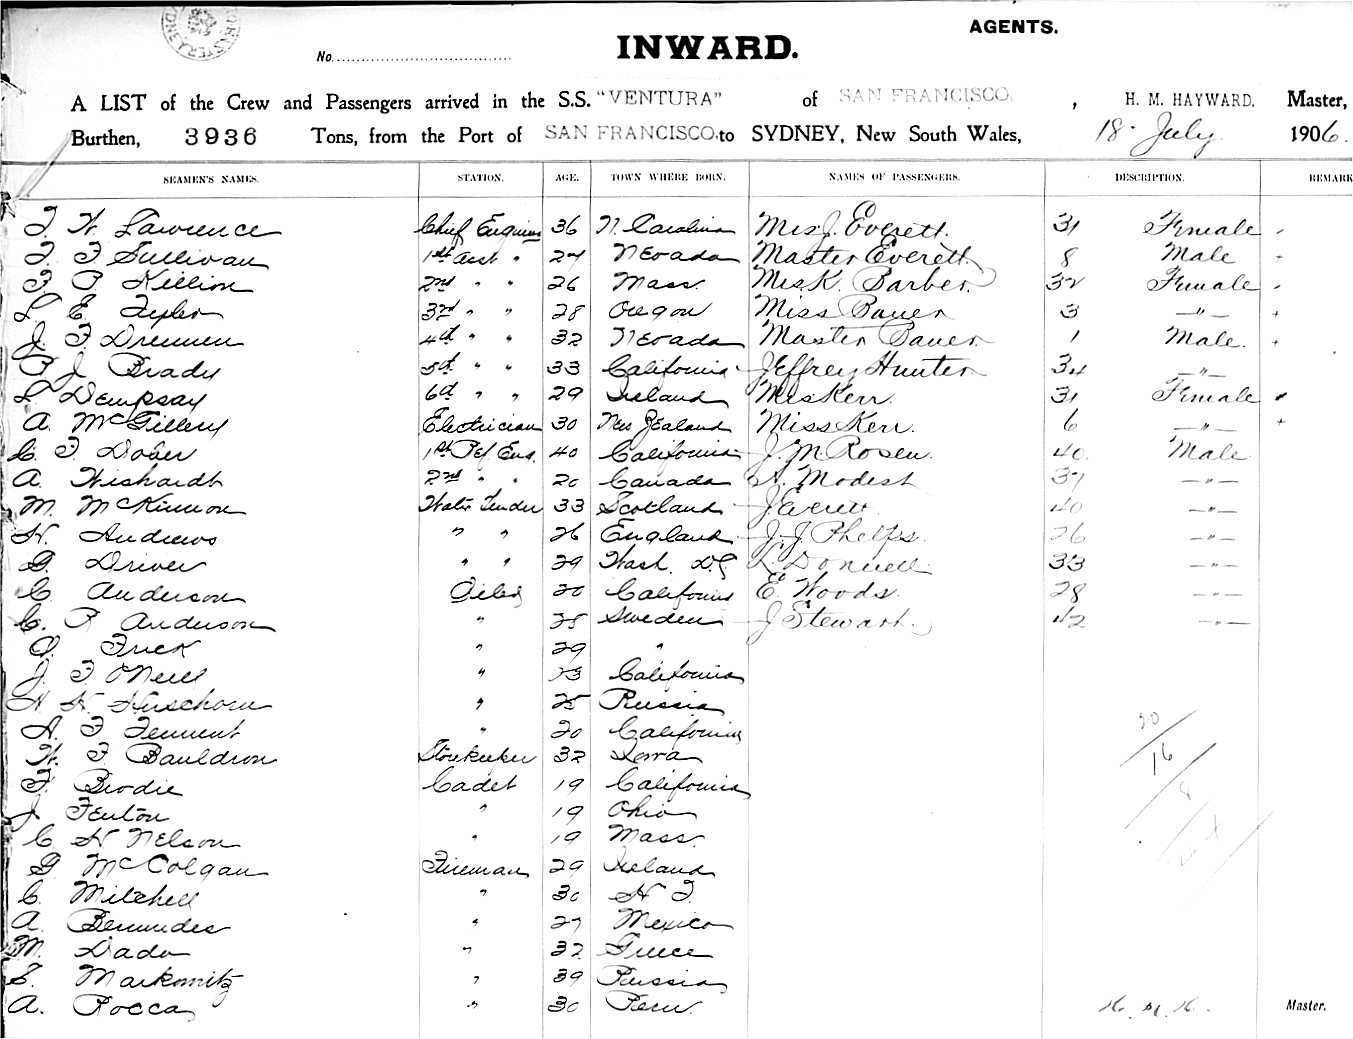 AGENTS.
No. INWARD.
A LIST of the Crew and Passengers arrived in the S.S. "VENTURA" of SAN FRANCISCO, H. M. HAYWARD. Master,
Burthen, 3936 Tons, from the Port of SAN FRANCISCO. to SYDNEY, New South Wales, 18 July 1906.
SEAMEN'S NAMES. STATION. AGE. TOWN WHERE BORN. NAMES OF PASSENGERS. DESCRIPTION. REMARK
W Lawrence Chief Engineer 36 N. Carolina Mrs J. Everett. 31 Female
Sullivan 1st Asst " 27 Nevada Master Everett 8 Male
P Killion 2nd " " 26 Mass. Mrs K. Barber. 32 Female
L E Tyler 3rd " " 28 Oregon Miss Bauer 3 "
J. F Drennen 4th " " 32 Nevada Master Bauer 1 Male.
P J Brady 5th " " 33 California Jeffrey Hunter 34 "
L Dempsay 6th " " 29 Ireland Mrs Kerr. 31 Female
A. McGillery Electrician 30 New Zealand Miss Kerr. 6 "
C. F. Dober 1st Ref Eng. 40 California J. M Rosen. 40. Male
A. Wishardt 2nd " " 20 Canada A. Modest 37 "
M. McKinnon Water Tender 33 Scotland J Everett 40 "
H. Andrews " " 26 England J. J Phelps. 26 "
G. Driver " " 29 Wash. D.C L. Donnell 33 "
C. Anderson Oiler 20 California E. Woods. 28 "
C. P. Anderson " 28 Sweden J Stewart. 42 "
O. Frick " 29 "
J. F O'Neill " 23 California
H H. Huschorn " 25 Russia
A. F Tennent " 20 California
W. F Bauldron Storekeeper 32 Iowa
F. Brodie Cadet 19 California
J. Fenton " 19 Ohio
C H Nelson " 19 Mass.
G McColgan Fireman 29 Ireland
C. Mitchell " 30 H T.
A. Bermudes " 27 Mexico
M. Dado " 32 Greece
S. Markowitz " 39 Russia
A. Rocca " 30 Peru. Master.
20
16
8